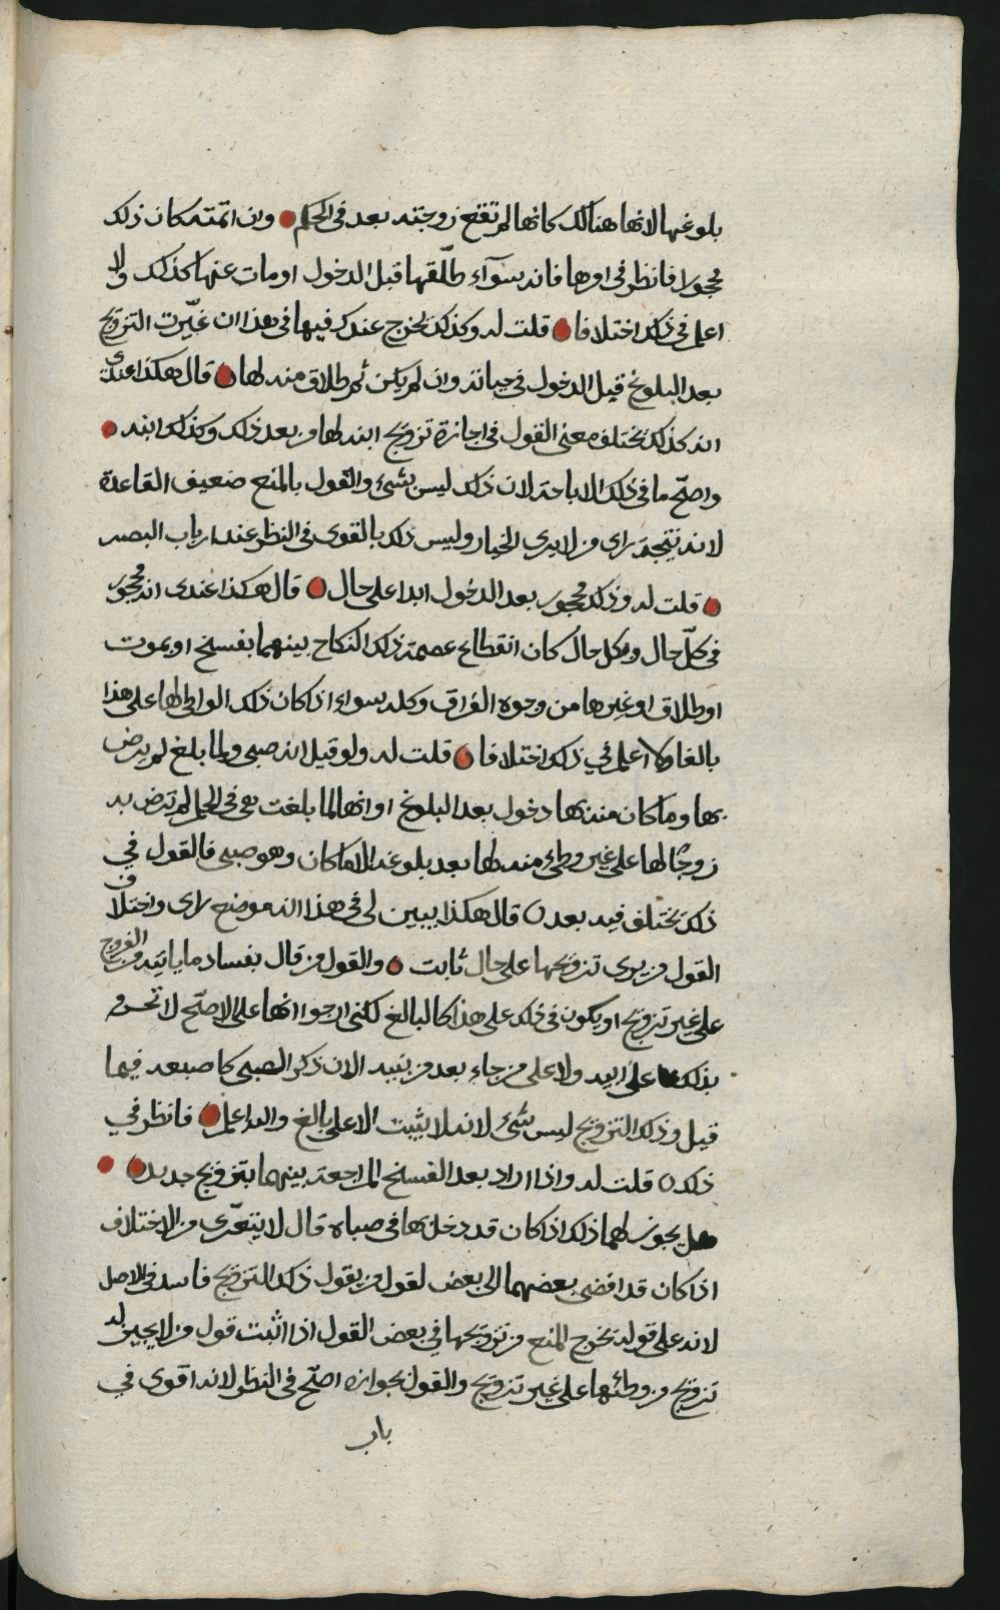 بلوغها لانها هنالك كانها لم تقع زوجته بعد في الحكم وان اتمته كان ذلك
محجورا فانظر في اوها فانه سوآء طلّقها قبل الدخول او مات عنها كذلك ولا
اعلم في ذلك اختلافا قلت له وكذلك يخرج عندك فيها في هذا ان غيّرت التزويج
بعد البلوغ قبل الدخول في حياته وان لم يكن ثم طلاق منه لها قال هكذا عندي
انه كذلك يختلف معنى القول في اجازة تزويج ابنه لها من بعد ذلك وكذلك ابنه
واصحّ ما في ذلك الاباحة لان ذلك ليس بشئ والقول بالمنع ضعيف القاعدة
لانه نتيجة راي من لا يرى الخيار وليس ذلك بالقوى في النظر عند ارباب البصر
قلت له وذلك محجور بعد الدخول ابدا على حال قال هكذا عندى انه محجور
في كلّ حال وبكل حال كان انقطاع عصمة ذلك النكاح بينهما بفسخ او بموت
او طلاق او غيرها من وجوه الفراق وكله سواء اذ كان ذلك الواطي لها على هذا
بالغا ولا اعلم في ذلك اختلافا قلت له ولو قيل انه صبى ولما بلغ لم يرض
بها وما كان منه بها دخول بعد البلوغ او انها لما بلغت هي في الحكم لم ترض به
زوجًا لها على غير وطئ منه لها بعد بلوغه الا ما كان وهو صبى فالقول في
ذلك يختلف فيه بعد قال هكذا يبين لى في هذا انه موضع راى واختلاف
القول من يرى تزويجها على حال ثابت والقول من قال بفساد ما ياتيه من الفروج
على غير تزويج او يكون في ذلك على هذا كالبالغ لكنى ارجوا انها على الاصحّ لا تحرم
بذلك على ابيه ولا على من جاء بعد من بنيه الان ذكر الصبى كاصبعه فيما
قيل وذلك التزويج ليس بشئ لانه لا يثبت الا على بالغ والله اعلم فانظر في
ذلك قلت له واذا اراد بعد الفسخ المراجعة بينهما بتزويج جديد
هل يجوز لهما ذلك اذا كان قد دخل بها في صباه قال لا يتعرّى من الاختلاف
اذا كان قد افضى بعضهما الى بعض لقول من يقول ذلك التزويج فاسد في الاصل
لانه على قوله يخرج المنع من تزويجها في بعض القول اذا اثبت قول من لا يجيز له
تزويج من وطئها على غير تزويج والقول بجوازه اصحّ في النظر لانه اقوى في
باب